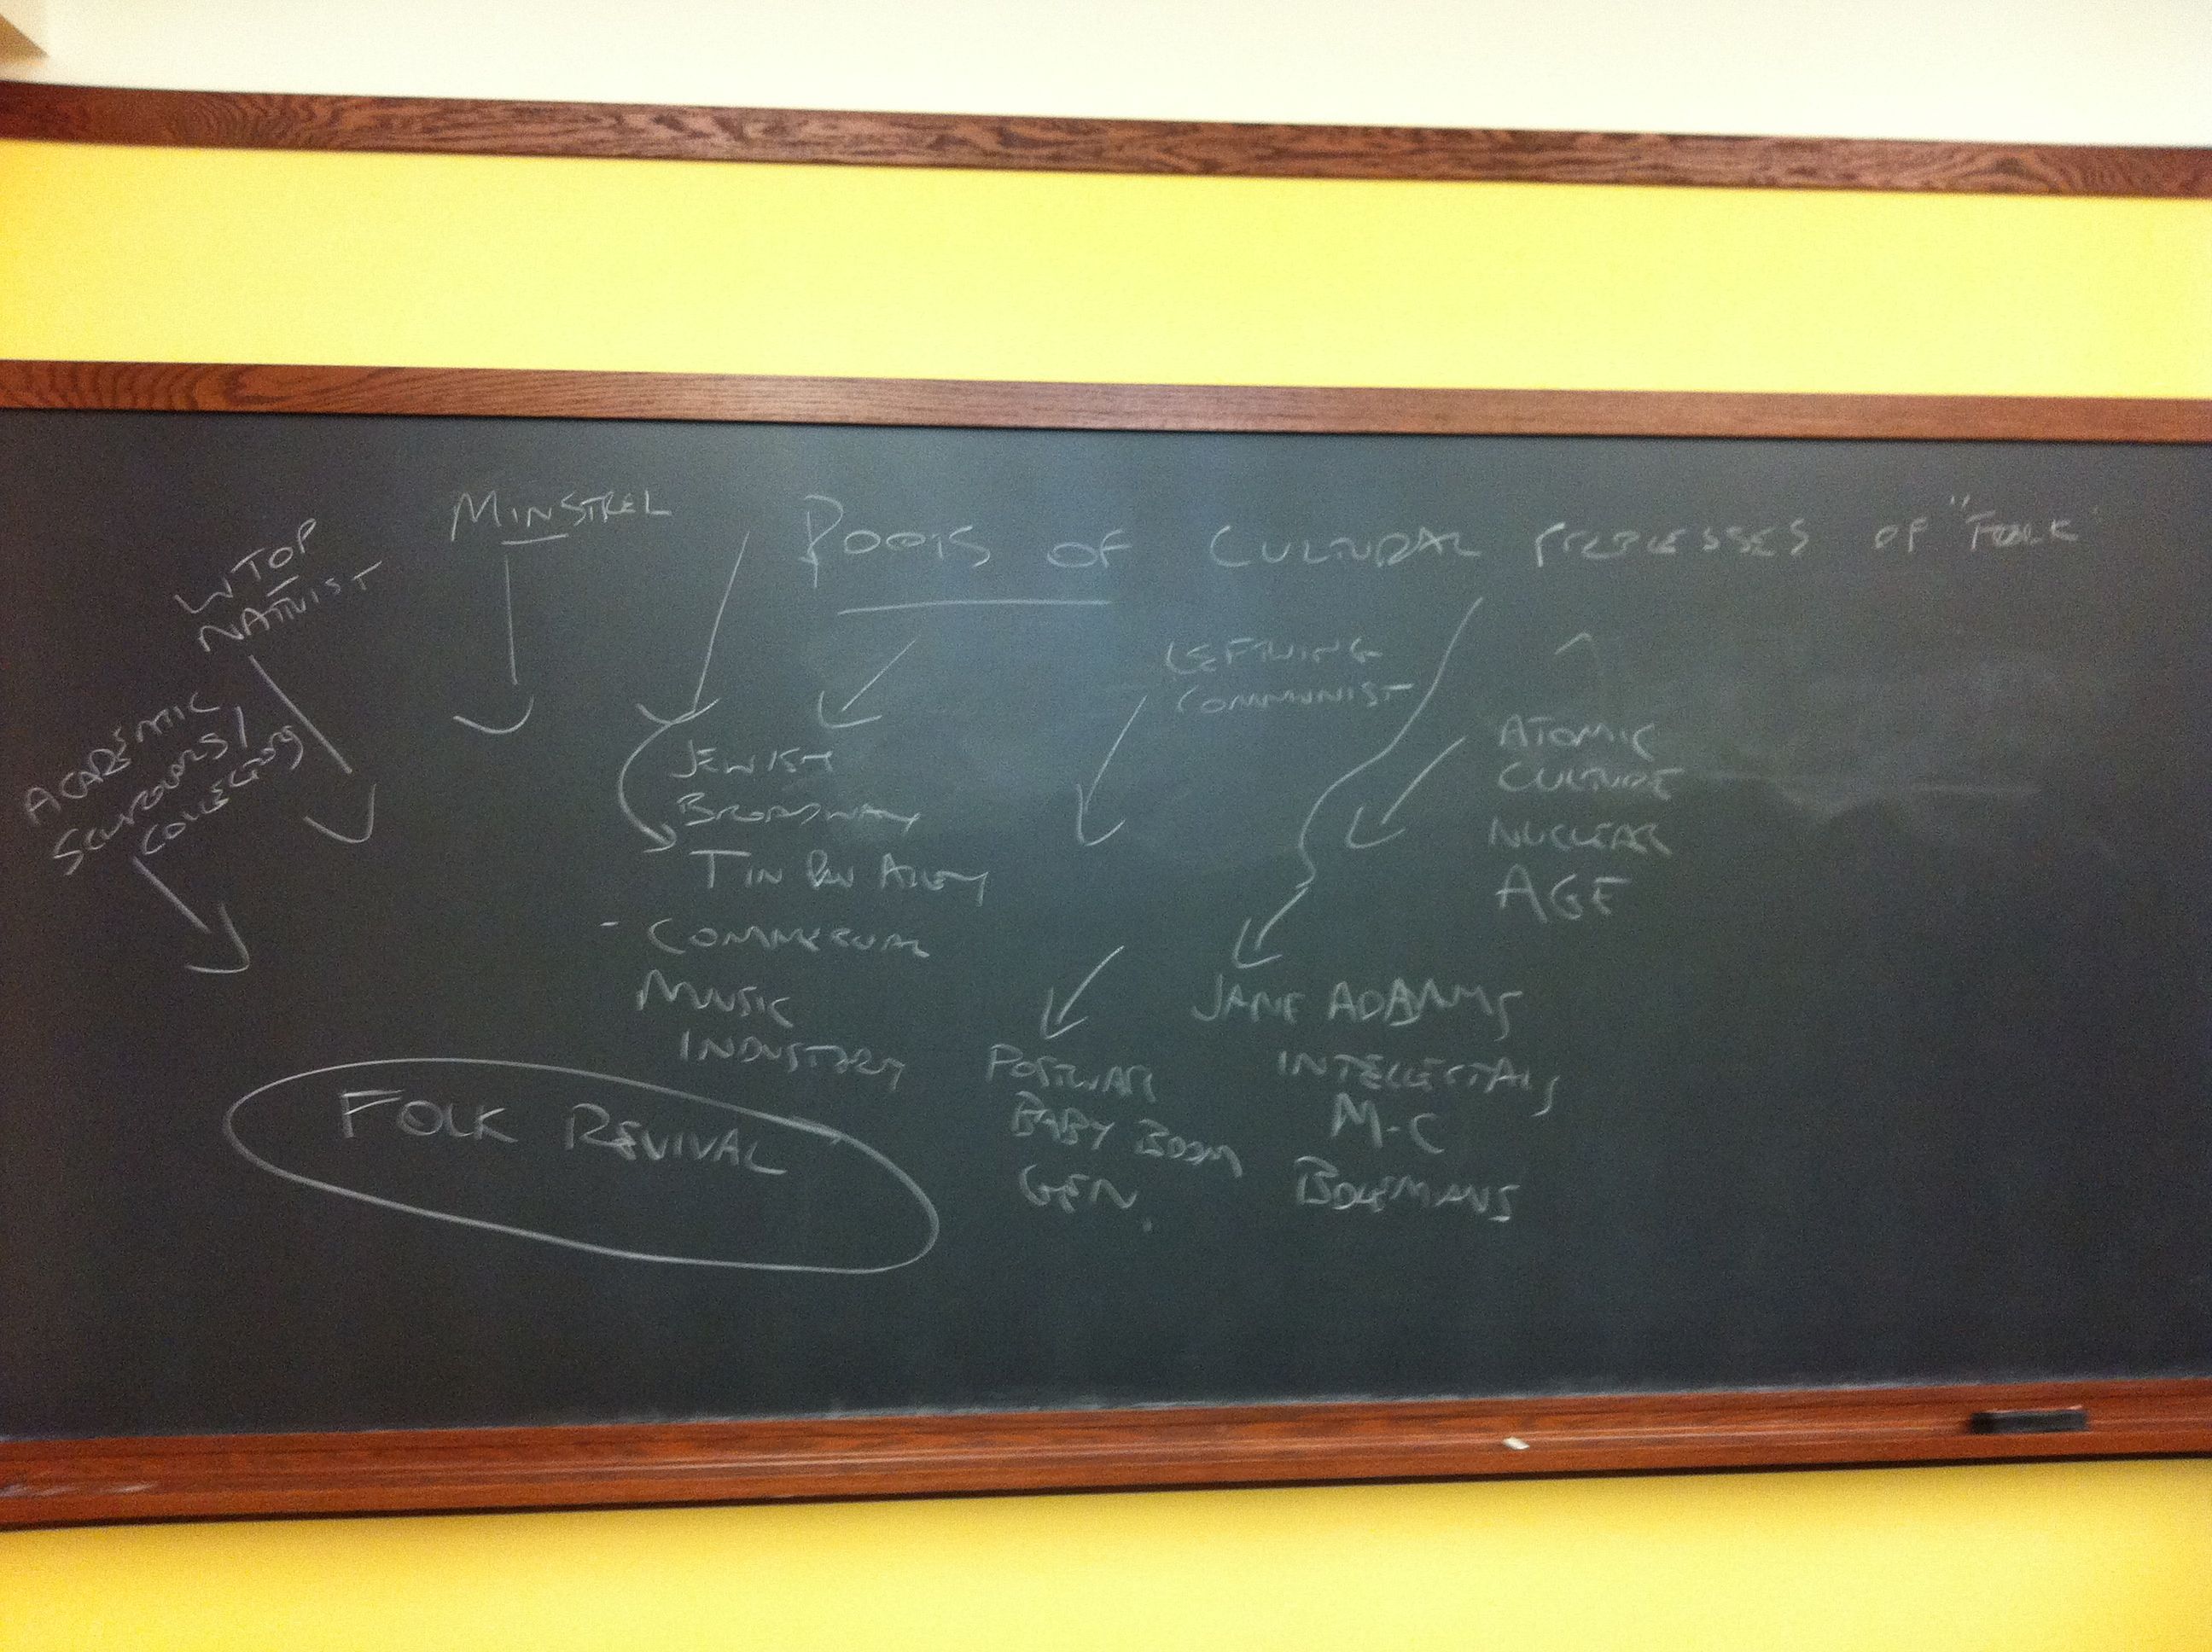 MINSTREL
ROOTS OF CULTURAL PROCESSES OF "FOLK"
WTOP
NATIVIST
ACADEMIC
SCHOLARS/
COLLECTORS
LEFTWING
COMMUNIST
JEWISH
BROADWAY
TIN PAN ALLEY
- COMMERCIAL
MUSIC
INDUSTRY
ATOMIC
CULTURE
NUCLEAR
AGE
FOLK REVIVAL
POSTWAR
BABY BOOM
GEN.
JANE ADAMS
INTELLECTALS
M-C
BOHEMIANS